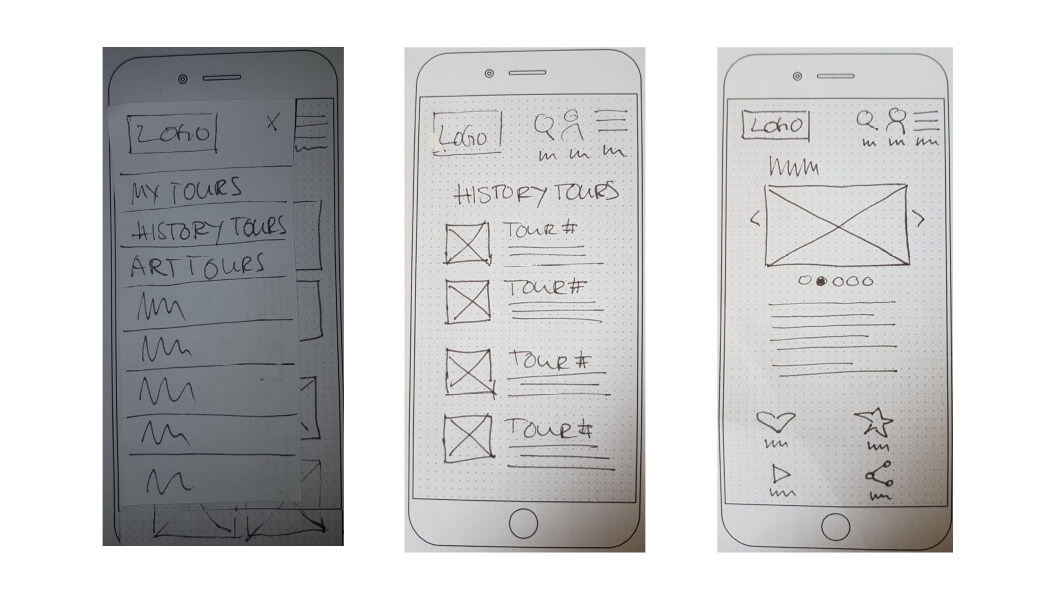 LOGO
X
MY TOURS
HISTORY TOURS
ART TOURS
LOGO
HISTORY TOURS
TOUR #
TOUR #
TOUR #
TOUR #
LOGO